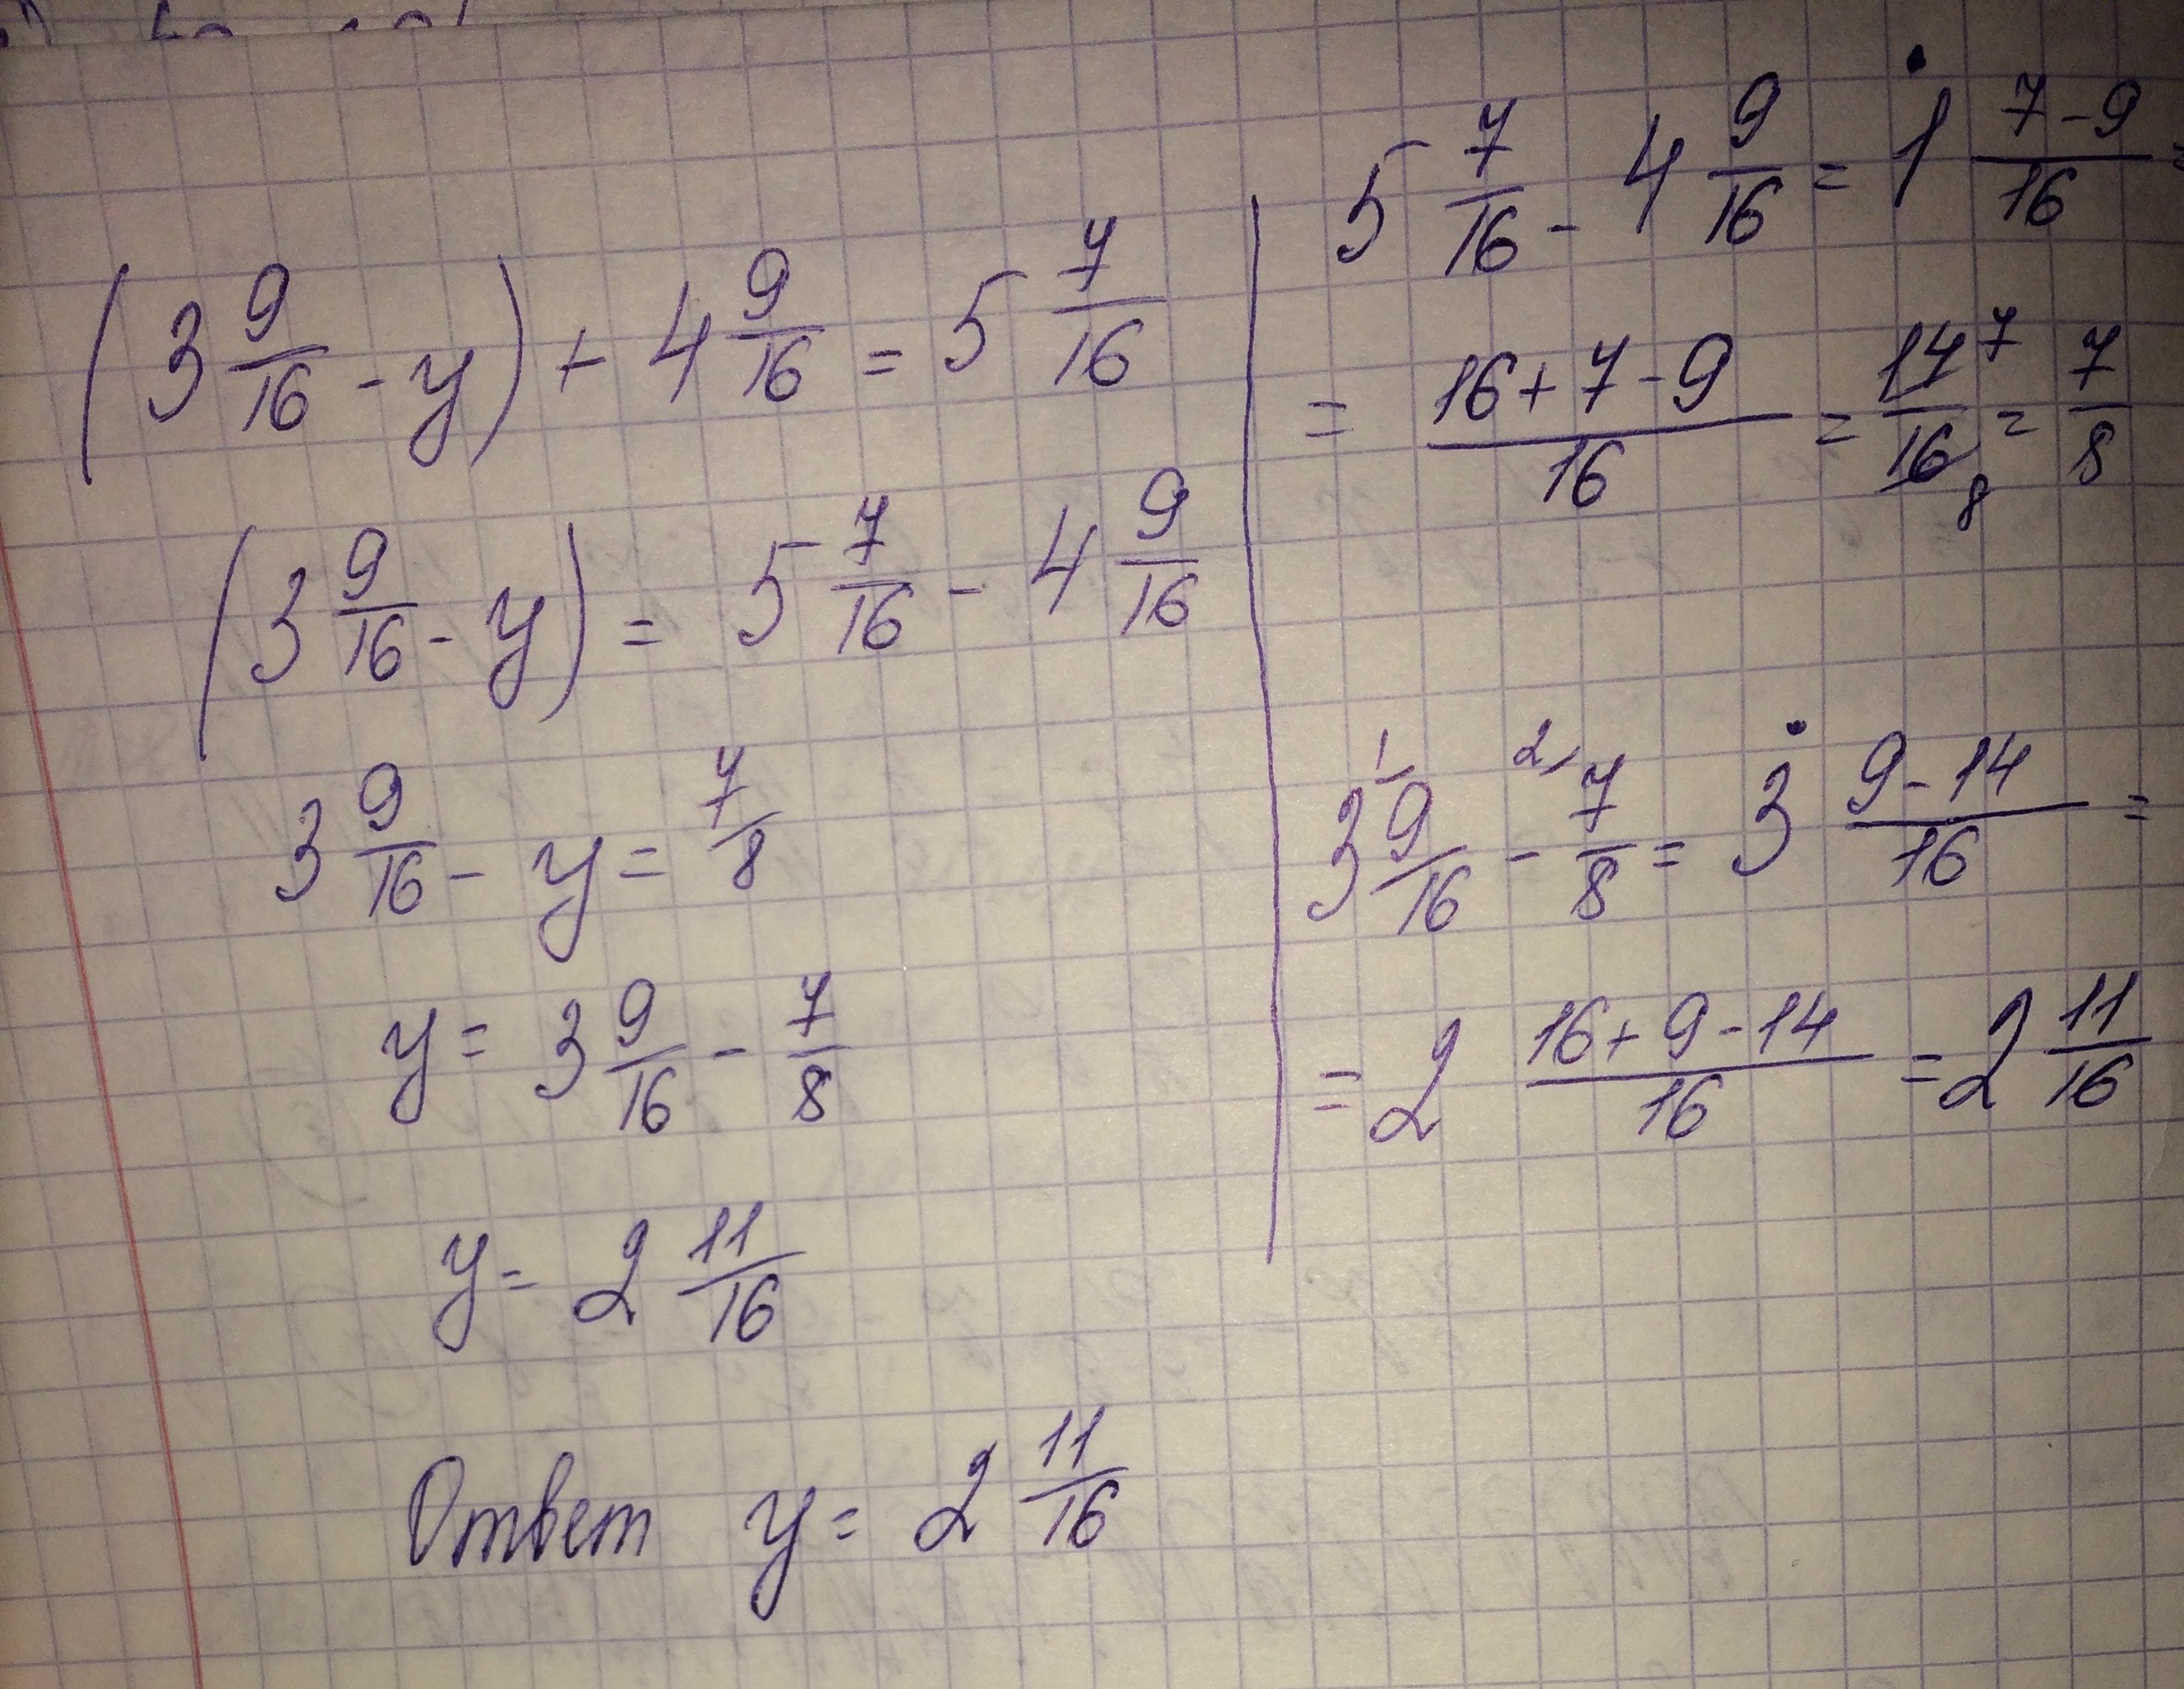 (3 9/16 - y) + 4 9/16 = 5 7/16
(3 9/16 - y) = 5 7/16 - 4 9/16
3 9/16 - y = 7/8
y = 3 9/16 - 7/8
y = 2 11/16
Ответ y = 2 11/16
5 7/16 - 4 9/16 = 1 (7-9)/16 =
= (16+7-9)/16 = 14 7/16 8 = 7/8
3 1 9/16 - 2 7/8 = 3 (9-14)/16 =
= 2 (16+9-14)/16 = 2 11/16